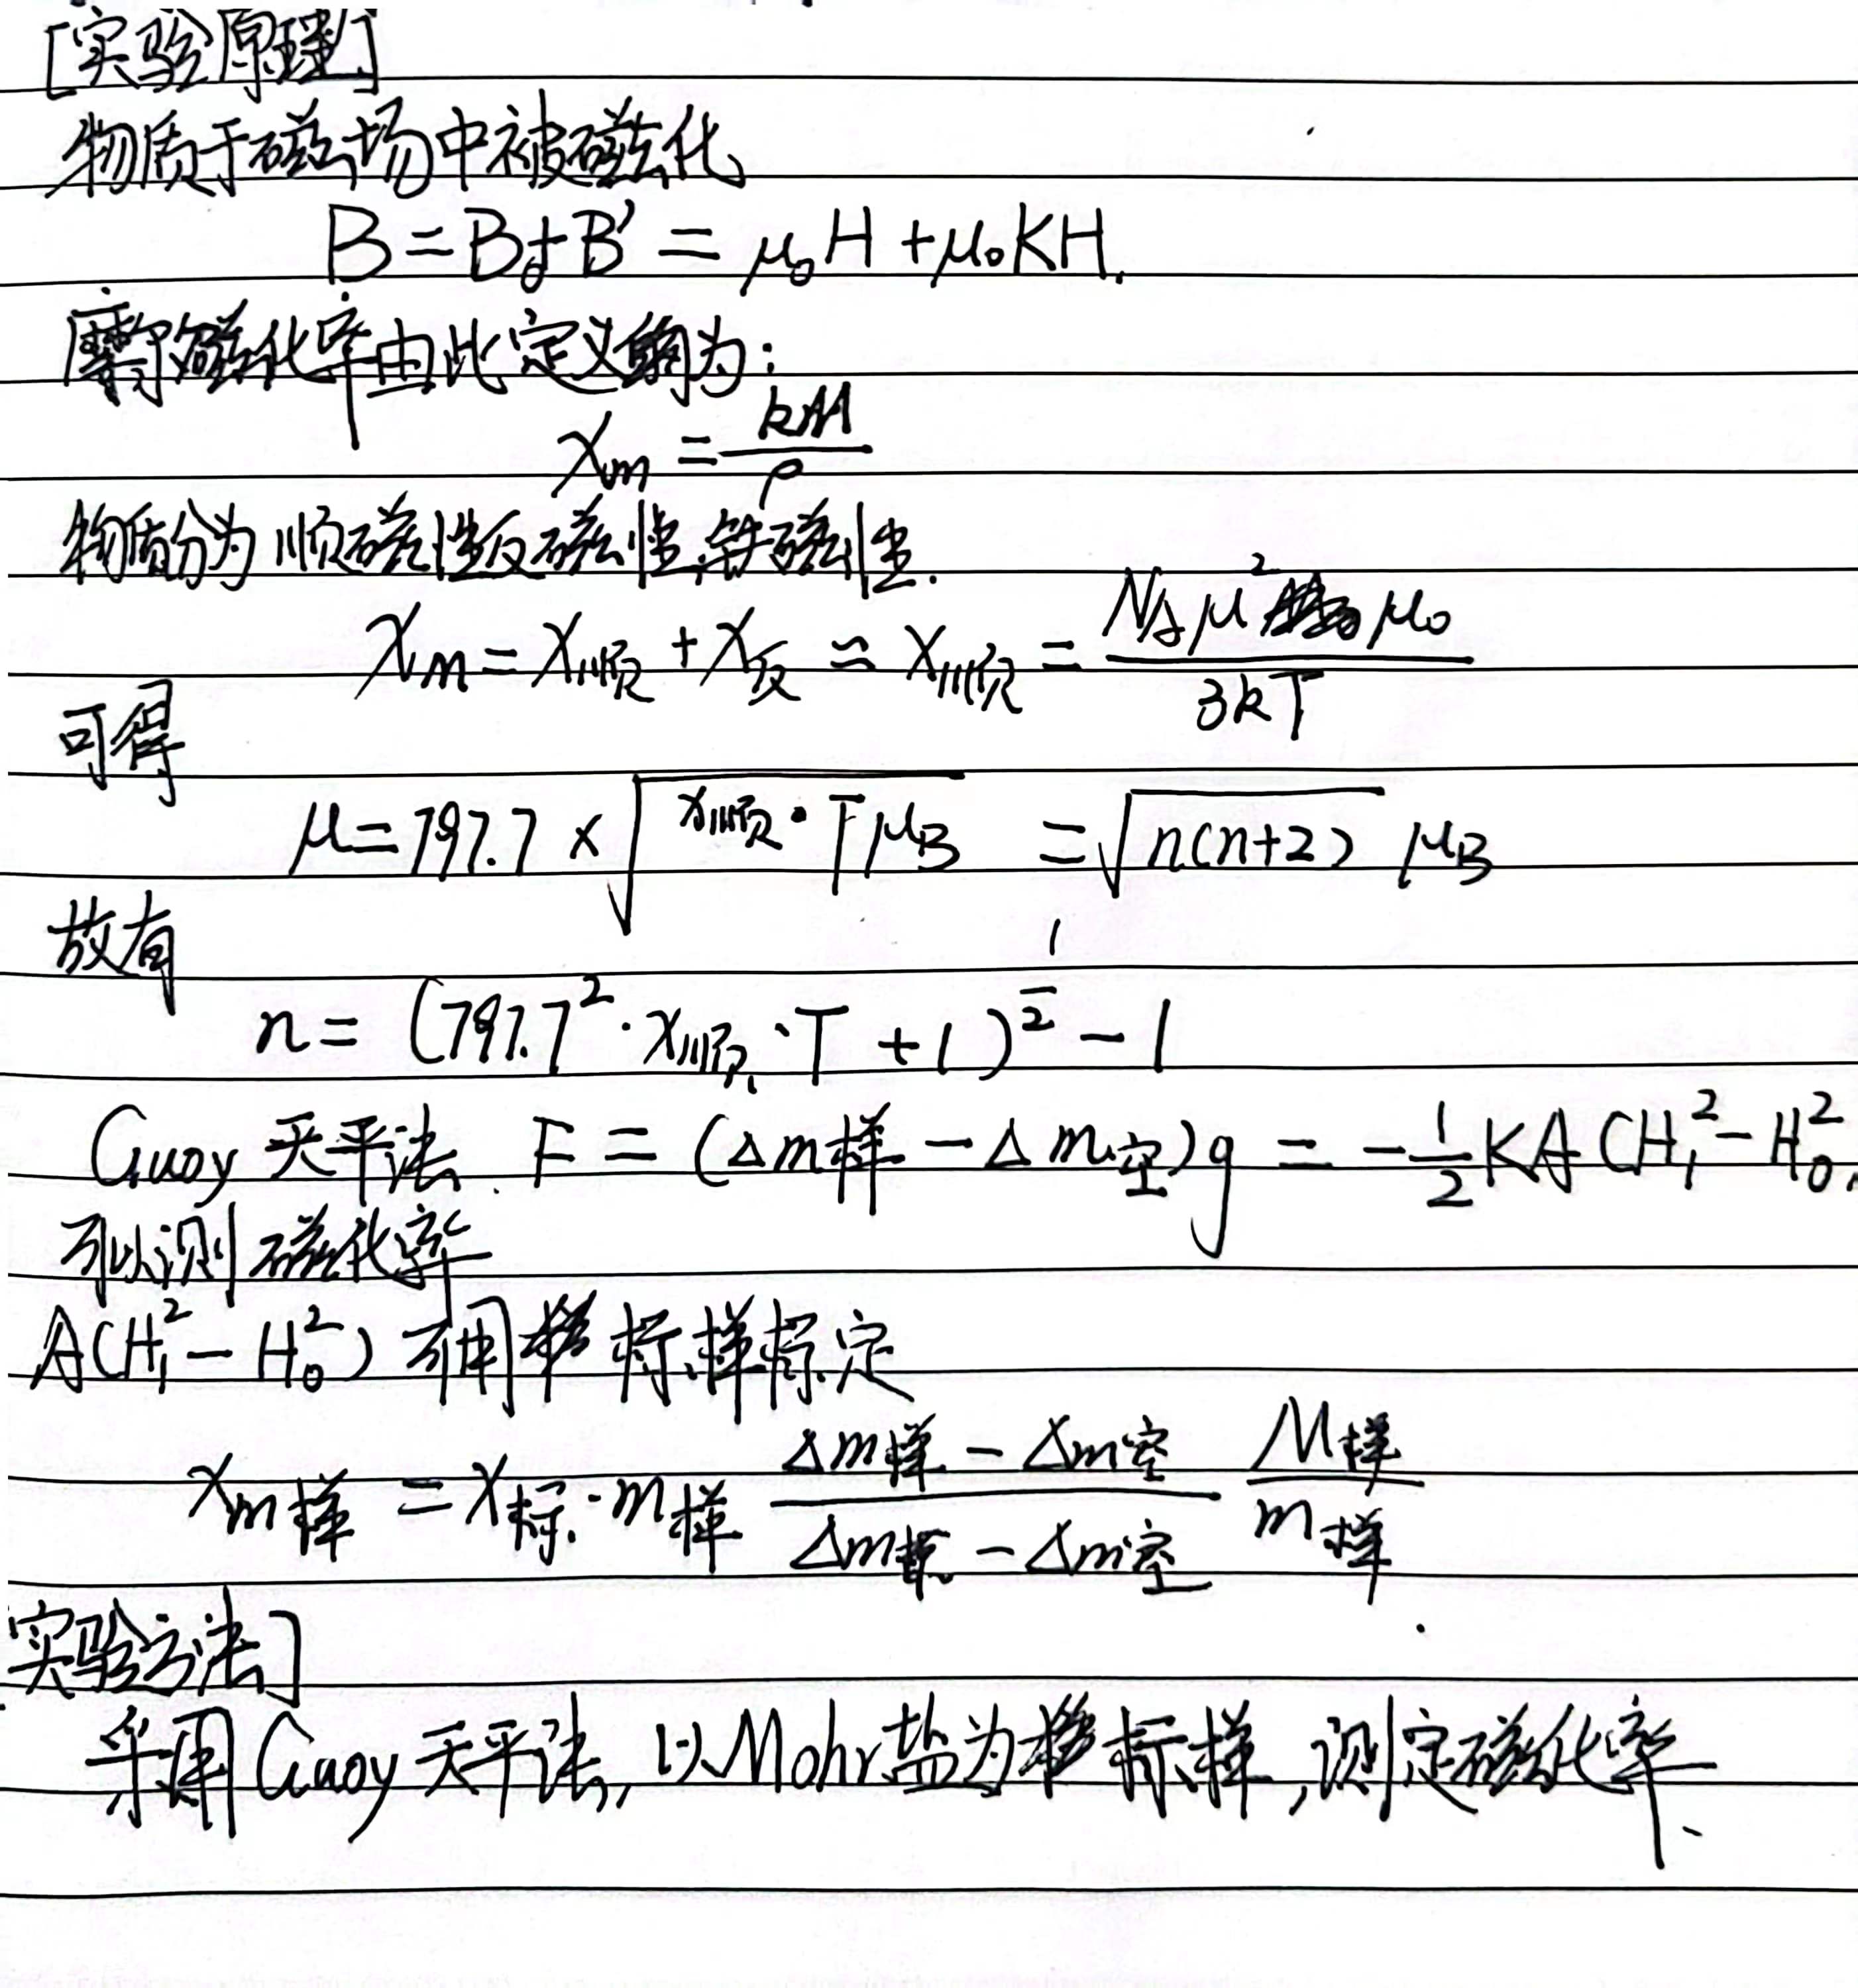 [实验原理]
物质于磁场中被磁化
B = B₀ + B' = μ₀H + μ₀KH.
摩尔磁化率由此定义为:
χm = kM/ρ
物质分为顺磁性反磁性,铁磁性.
χm = χ顺 + χ反 ≈ χ顺 = N_A μ² μ₀ / 3kT
可得
μ = 797.7 × √(χ顺·T μB) = √(n(n+2)) μB
故有
n = (797.7²·χ顺·T + 1)^(1/2) − 1
Guoy 天平法. F = (Δm样 − Δm空)g = −1/2 KA (H₁² − H₀²
可以测磁化率
A(H₁² − H₀²) 可用标样标定
χm样 = χ标·m样 (Δm样 − Δm空)/(Δm标 − Δm空) M样/m样
实验方法]
采用 Guoy 天平法, 以Mohr盐为标样,测定磁化率.